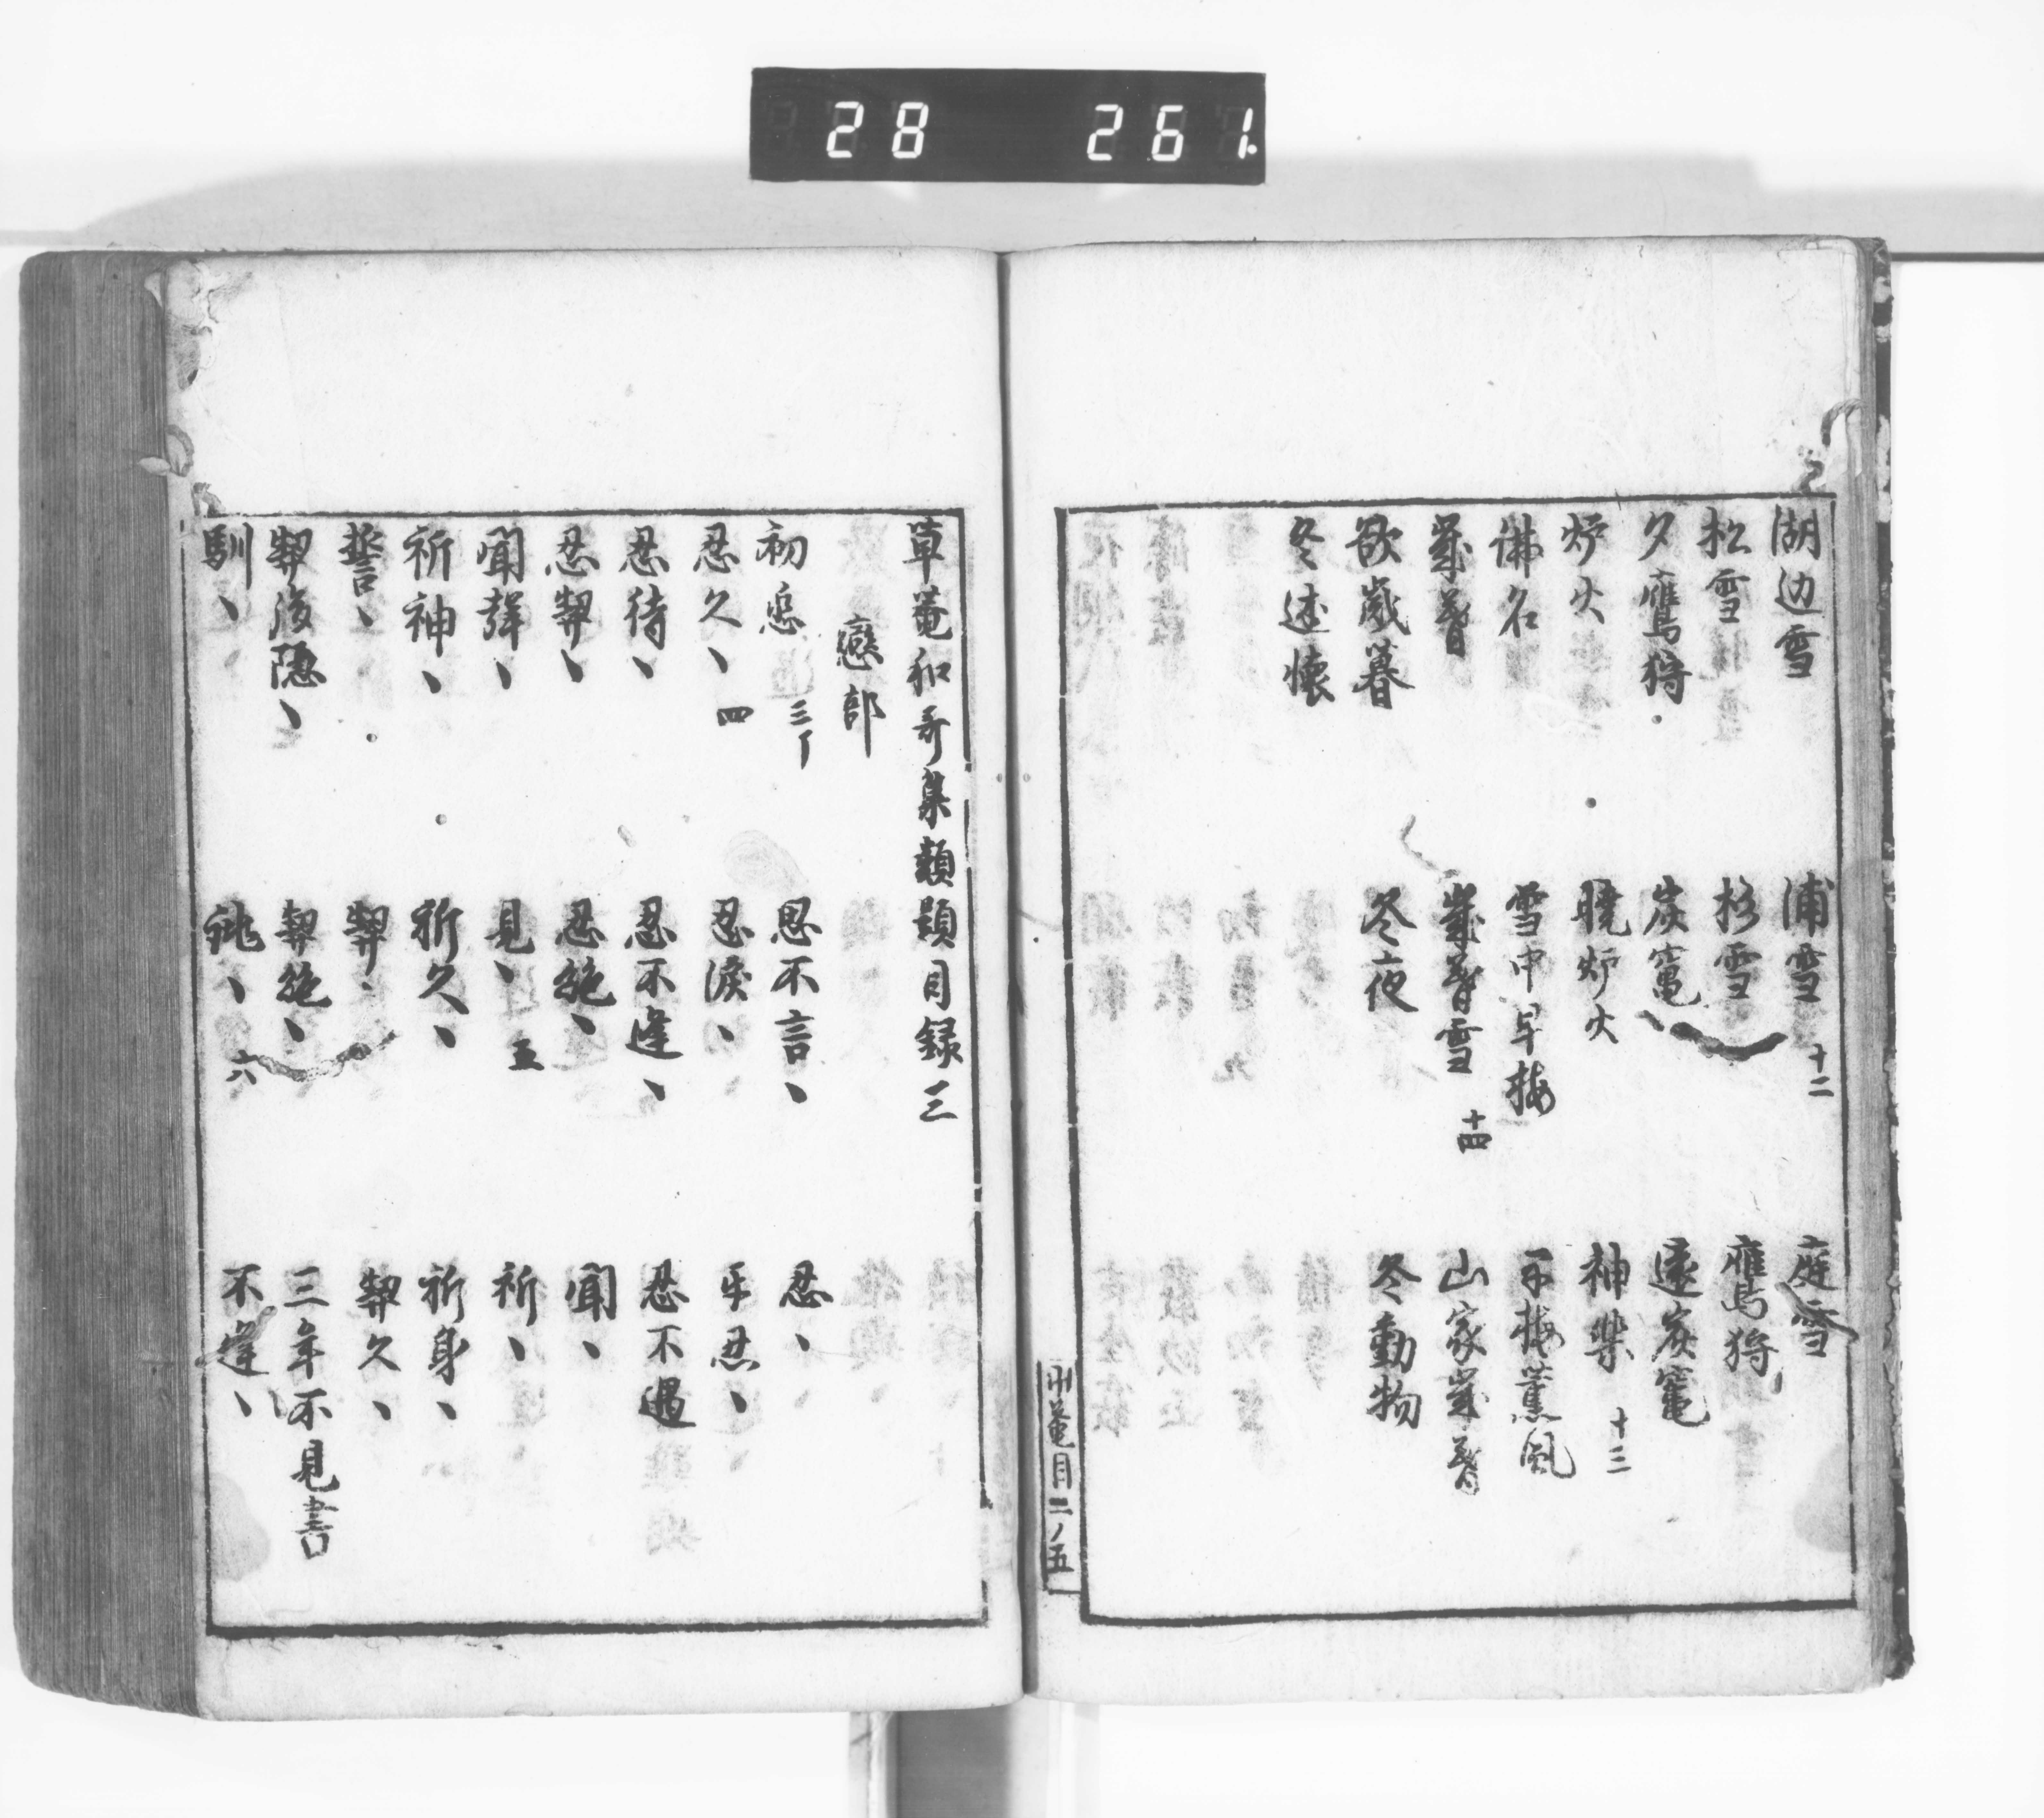 28 261.
湖辺雪 浦雪 十二 庭雪
松雪 杉雪 鷹狩
夕鷹狩 炭竃 遠炭竃
炉火 暁炉火 神楽 十三
仏名 雪中早梅 早梅薫風
歳暮 歳暮雪 十四 山家歳暮
欲歳暮 冬夜 冬動物
冬述懐
草菴目二ノ五
草菴和哥集類題目録三
戀部
初恋 三丁 忍不言、 忍、
忍久、 四 忍涙、 互忍、
忍待、 忍不逢、 忍不遇
忍契、 忍絶、 聞、
聞聲、 見、 五 祈、
祈神、 祈久、 祈身、
誓、 契、 契久、
契後隠、 契絶、 三年不見書
馴、 誂、 六 不逢、